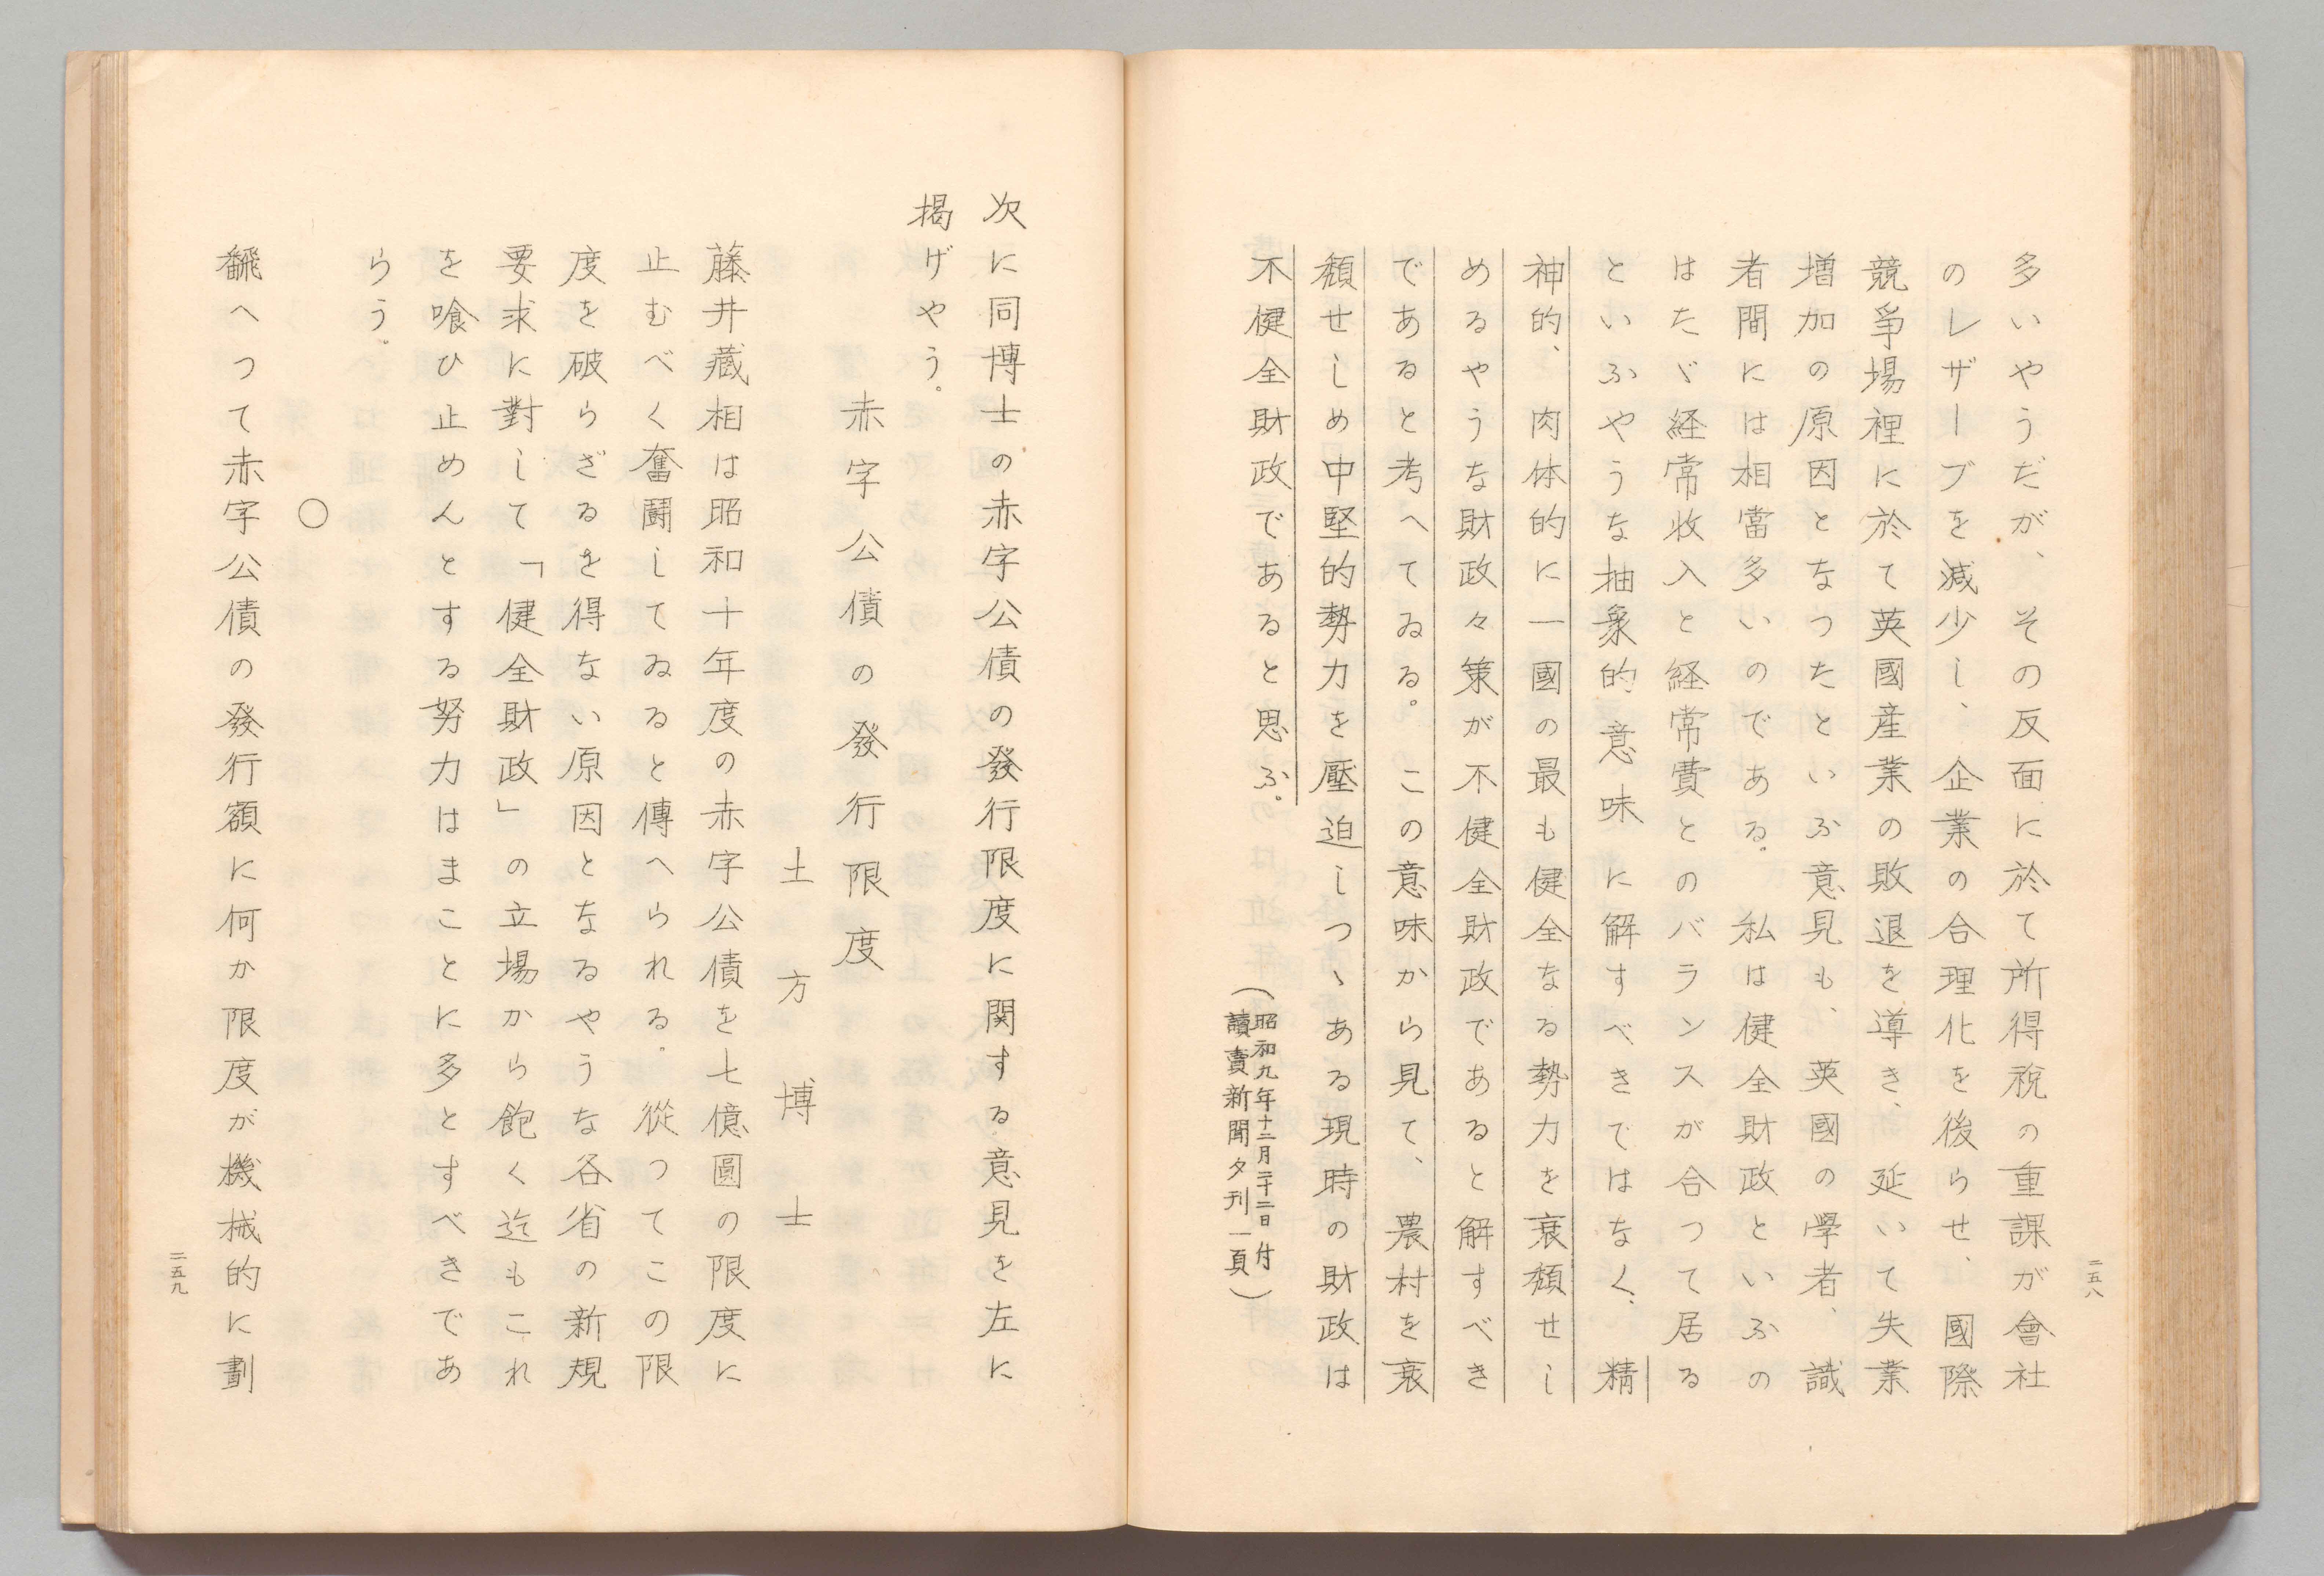 多いやうだが、その反面に於て所得稅の重課が會社
のレザーブを減少し、企業の合理化を後らせ、國際
競爭場裡に於て英國産業の敗退を導き、延いて失業
増加の原因となつたといふ意見も、英國の學者、識
者間には相當多いのである。私は健全財政といふの
はたゞ経常收入と経常費とのバランスが合つて居る
といふやうな抽象的意味に解すべきではなく、精
神的、肉体的に一國の最も健全なる勢力を衰頽せし
めるやうな財政々策が不健全財政であると解すべき
であると考へてゐる。この意味から見て、農村を衰
頽せしめ中堅的勢力を壓迫しつゝある現時の財政は
不健全財政であると思ふ。
(昭和九年十二月二十二日付
讀賣新聞夕刊一頁)
二五八
次に同博士の赤字公債の發行限度に関する意見を左に
揭げやう。
赤字公債の發行限度
土方博士
藤井藏相は昭和十年度の赤字公債を七億圓の限度に
止むべく奮鬪してゐると傳へられる。從つてこの限
度を破らざるを得ない原因となるやうな各省の新規
要求に對して「健全財政」の立場から飽く迄もこれ
を喰ひ止めんとする努力はまことに多とすべきであ
らう。
〇
飜へつて赤字公債の發行額に何か限度が機械的に劃
二五九